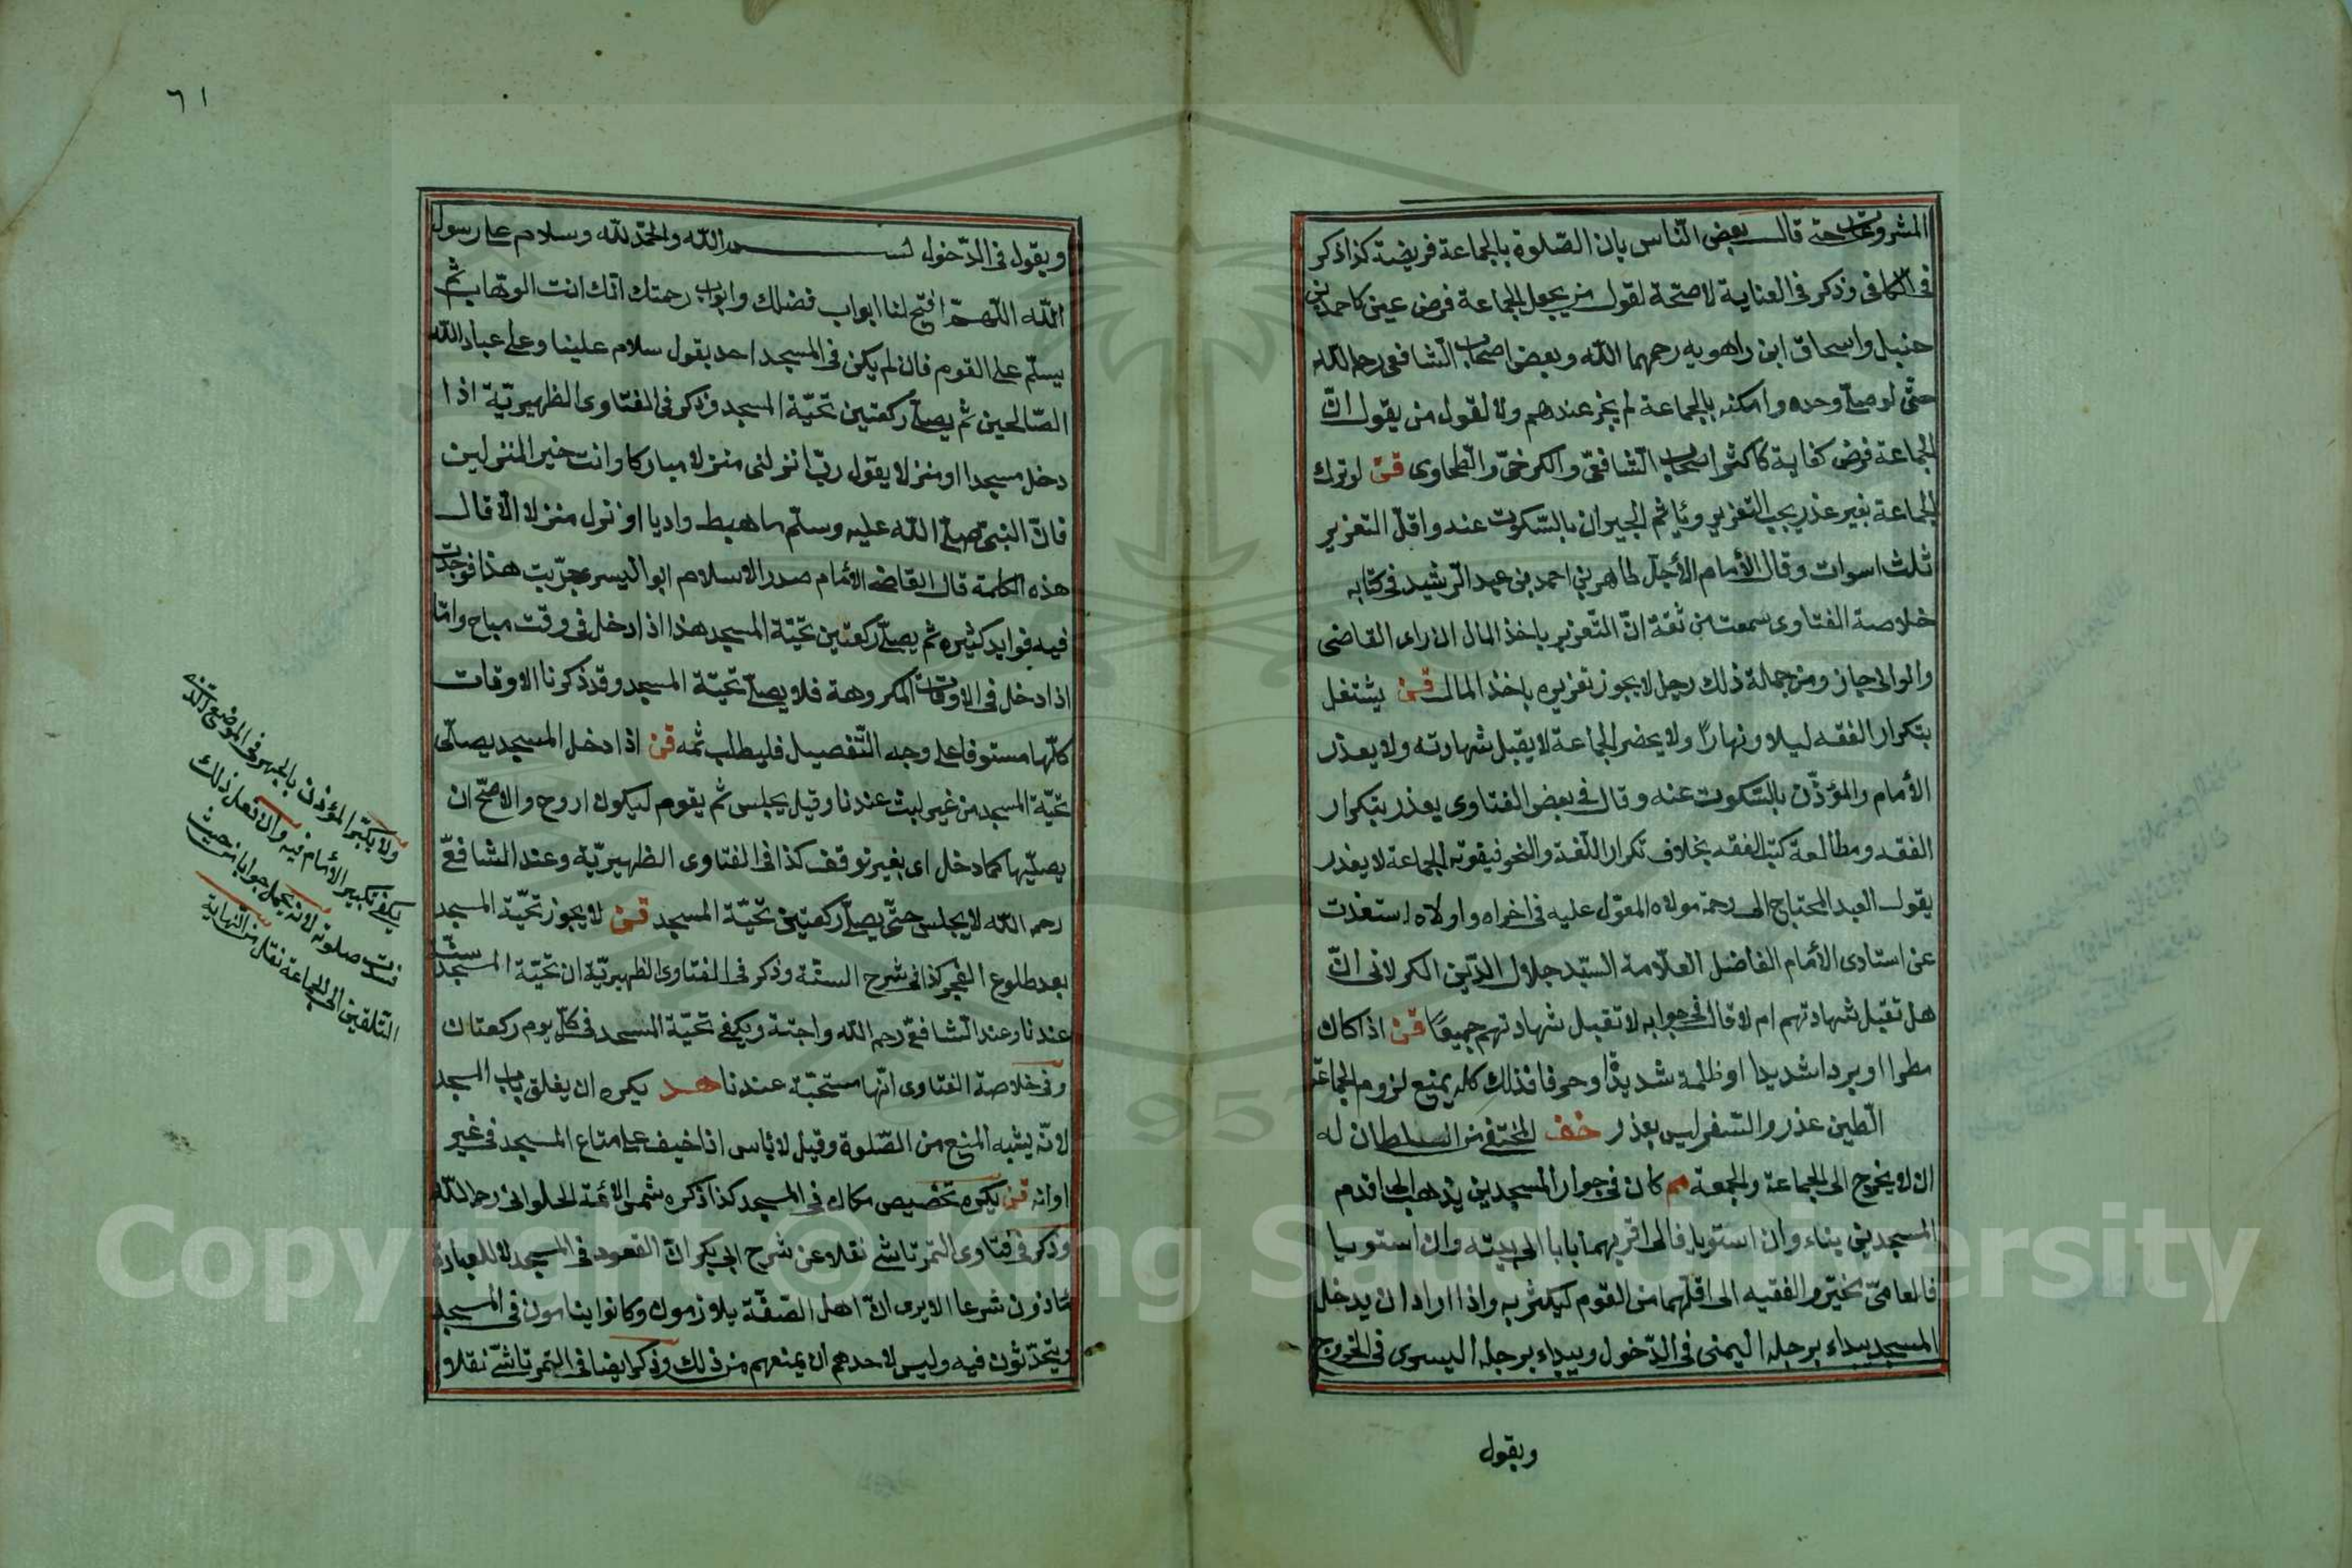 المشروعات حتى قال بعض الناس بان الصلوة بالجماعة فريضة كذا ذكر
فى الكافى وذكر فى العناية لا صحة لقول من يجعل الجماعة فرض عين كاحمد بن
حنبل واسحاق ابن راهويه رحمهما الله وبعض اصحاب الشافعى رحمه الله
حتى لو صلى وحده وامكنه بالجماعة لم يجز عندهم ولا لقول من يقول ان
الجماعة فرض كفاية كاكثر اصحاب الشافعى والكرخى والطحاوى قن لو ترك
الجماعة بغير عذر يجب التعزير وياثم الجيران بالسكوت عنه واقل التعزير
ثلث اسوات وقال الأمام الأجل طاهر بن احمد بن عبد الرشيد فى كتابه
خلاصة الفتاوى سمعت من ثقة ان التعزير باخذ المال ان راى القاضى
والوالى جاز ومن جملة ذلك رجل لا يجوز تعزيره باخذ المال قن يشتغل
بتكرار الفقه ليلا ونهارًا ولا يحضر الجماعة لا يقبل شهادته ولا يعذر
الأمام والمؤذن بالسكوت عنه وقال فى بعض الفتاوى يعذر بتكرار
الفقه ومطالعة كتب الفقه بخلاف تكرار اللغة والنحو فيفوته الجماعة لا يعذر
يقول العبد المحتاج الى رحمة مولاه المعول عليه فى اخراه واولاه استعذت
عن استادى الأمام الفاضل العلامة السيد جلال الدين الكرلانى ان
هل تقبل شهادتهم ام لا قال فى جوابه لا تقبل شهادتهم جميعًا قن اذا كان
مطرا او بردا شديدا او ظلمة شديدة او حرفا فذلك كله يمنع لزوم الجماعة
الطين عذر والسفر ليس بعذر خف المختفى من السلطان له
ان لا يخرج الى الجماعة والجمعة مم كان فى جوار المسجدين يذهب الى اقدم
المسجدين بناء وان استويا فالى اقربهما بابا الى بيته وان استويا
فالعامى يخير والفقيه الى اقلهما من القوم ليكثر به واذا اراد ان يدخل
المسجد يبداء برجله اليمنى فى الدخول ويبداء برجله اليسرى فى الخروج
ويقول
٦١
ويقول فى الدخول بسم الله والحمد لله وسلام على رسول
الله اللهم افتح لنا ابواب فضلك وابواب رحمتك انك انت الوهاب ثم
يسلم على القوم فان لم يكن فى المسجد احد يقول سلام علينا وعلى عباد الله
الصالحين ثم يصلى ركعتين تحية المسجد وذكر فى الفتاوى الظهيرية اذا
دخل مسجدا او منزلا يقول رب انزلنى منزلا مباركا وانت خير المنزلين
فان النبى صلى الله عليه وسلم ما هبط واديا او نزل منزلا الا قال
هذه الكلمة قال القاضى الأمام صدر الاسلام ابو اليسر جربت هذا فوجدت
فيه فوايد كثيره ثم يصلى ركعتين تحية المسجد هذا اذا دخل فى وقت مباح واما
اذا دخل فى الاوقات المكروهة فلا يصلى تحية المسجد وقد ذكرنا الاوقات
كلها مستوفا على وجه التفصيل فليطلب ثمه قن اذا دخل المسجد يصلى
تحية المسجد من غير لبث عندنا وقيل يجلس ثم يقوم ليكون اروح والاصح ان
يصليها كما دخل اى بغير توقف كذا فى الفتاوى الظهيرية وعند الشافعى
رحمه الله لا يجلس حتى يصلى ركعتين تحية المسجد قن لا يجوز تحية المسجد
بعد طلوع الفجر كذا فى شرح السنة وذكر فى الفتاوى الظهيرية ان تحية المسجد سنة
عندنا وعند الشافعى رحمه الله واجبة ويكفى تحية المسجد فى كل يوم ركعتان
وفى خلاصة الفتاوى انها مستحبة عندنا هد يكره ان يغلق باب المسجد
لانه يشبه المنع من الصلوة وقيل لا باس اذا خيف على متاع المسجد فى غير
اوانه قن يكره تخصيص مكان فى المسجد كذا ذكره شمس الأئمة الحلوانى رحمه الله
وذكر فى فتاوى التمرتاشى نقلا عن شرح ابى بكر ان القعود فى المسجد لا للعبادة
ماذون شرعا الا يرى ان اهل الصفة يلازمون وكانوا ينامون فى المسجد
ويتحدثون فيه وليس لاحدهم ان يمنعهم من ذلك وذكر ايضا فى التمرتاشى نقلا
ولا يكبر المؤذن بالجهر فى الموضع الذى
يكفى تكبير الأمام فيه وان فعل ذلك
فسدت صلوته لانه يحمل جوابا من حيث
التلقين الى الجماعة نقل من النهاية
Copyright © King Saud University
957